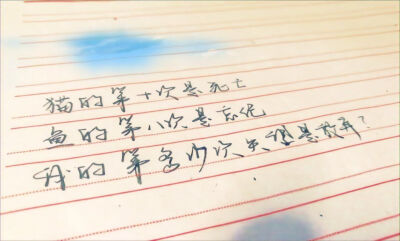 猫的第十次是死亡
鱼的第八次是忘记
我的第多少次失望是放弃？